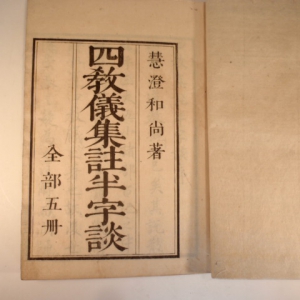 慧澄和尚著
四教儀集註半字談
全部五冊